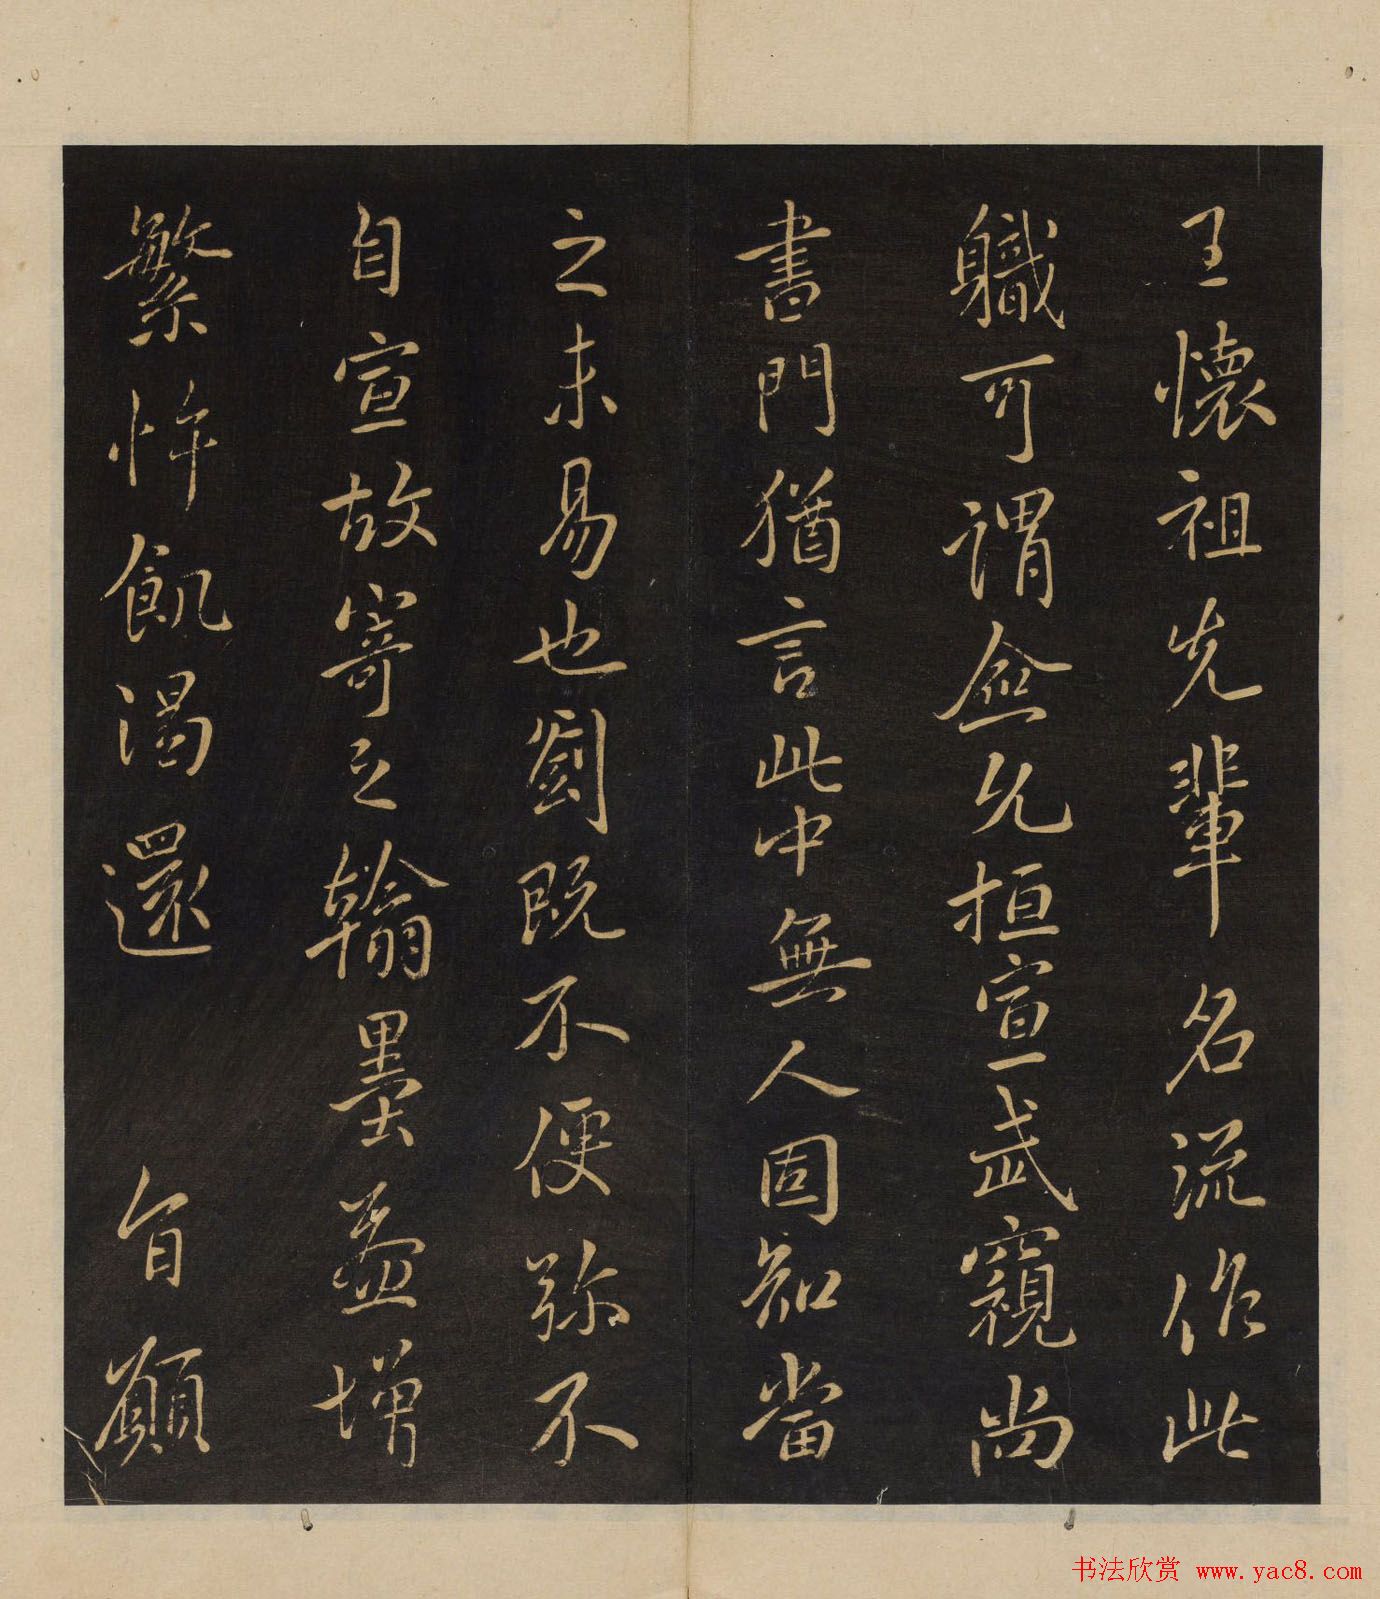 王懷祖先輩名流作此
職可謂僉允桓宣武窺尚
書門猶言此中無人固知當
之未易也劉既不便弥不
自宣故寄之翰墨益增
繁忤飢渴還 旨願
书法欣赏 www.yac8.com